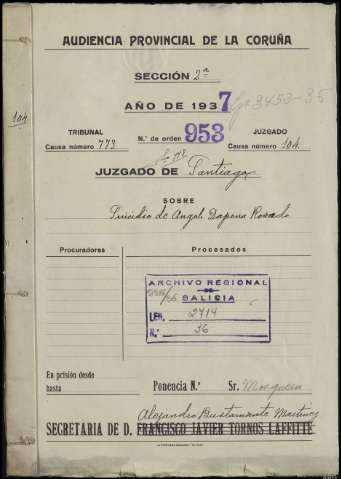 AUDIENCIA PROVINCIAL DE LA CORUÑA
SECCIÓN 2ª
AÑO DE 1937
TRIBUNAL
Causa número 773
N.º de orden 953
JUZGADO
Causa número 104
104
JUZGADO DE Santiago
SOBRE
Suicidio de Angel Dapena Rosado
Procuradores
Procesados
ARCHIVO REGIONAL
DE
GALICIA
LEG. 2714
N.º 36
En prisión desde
hasta
Ponencia N.º Sr. Mosquera
Alejandro Bustamante Martínez
SECRETARIA DE D. FRANCISCO JAVIER TORNOS LAFFITTE